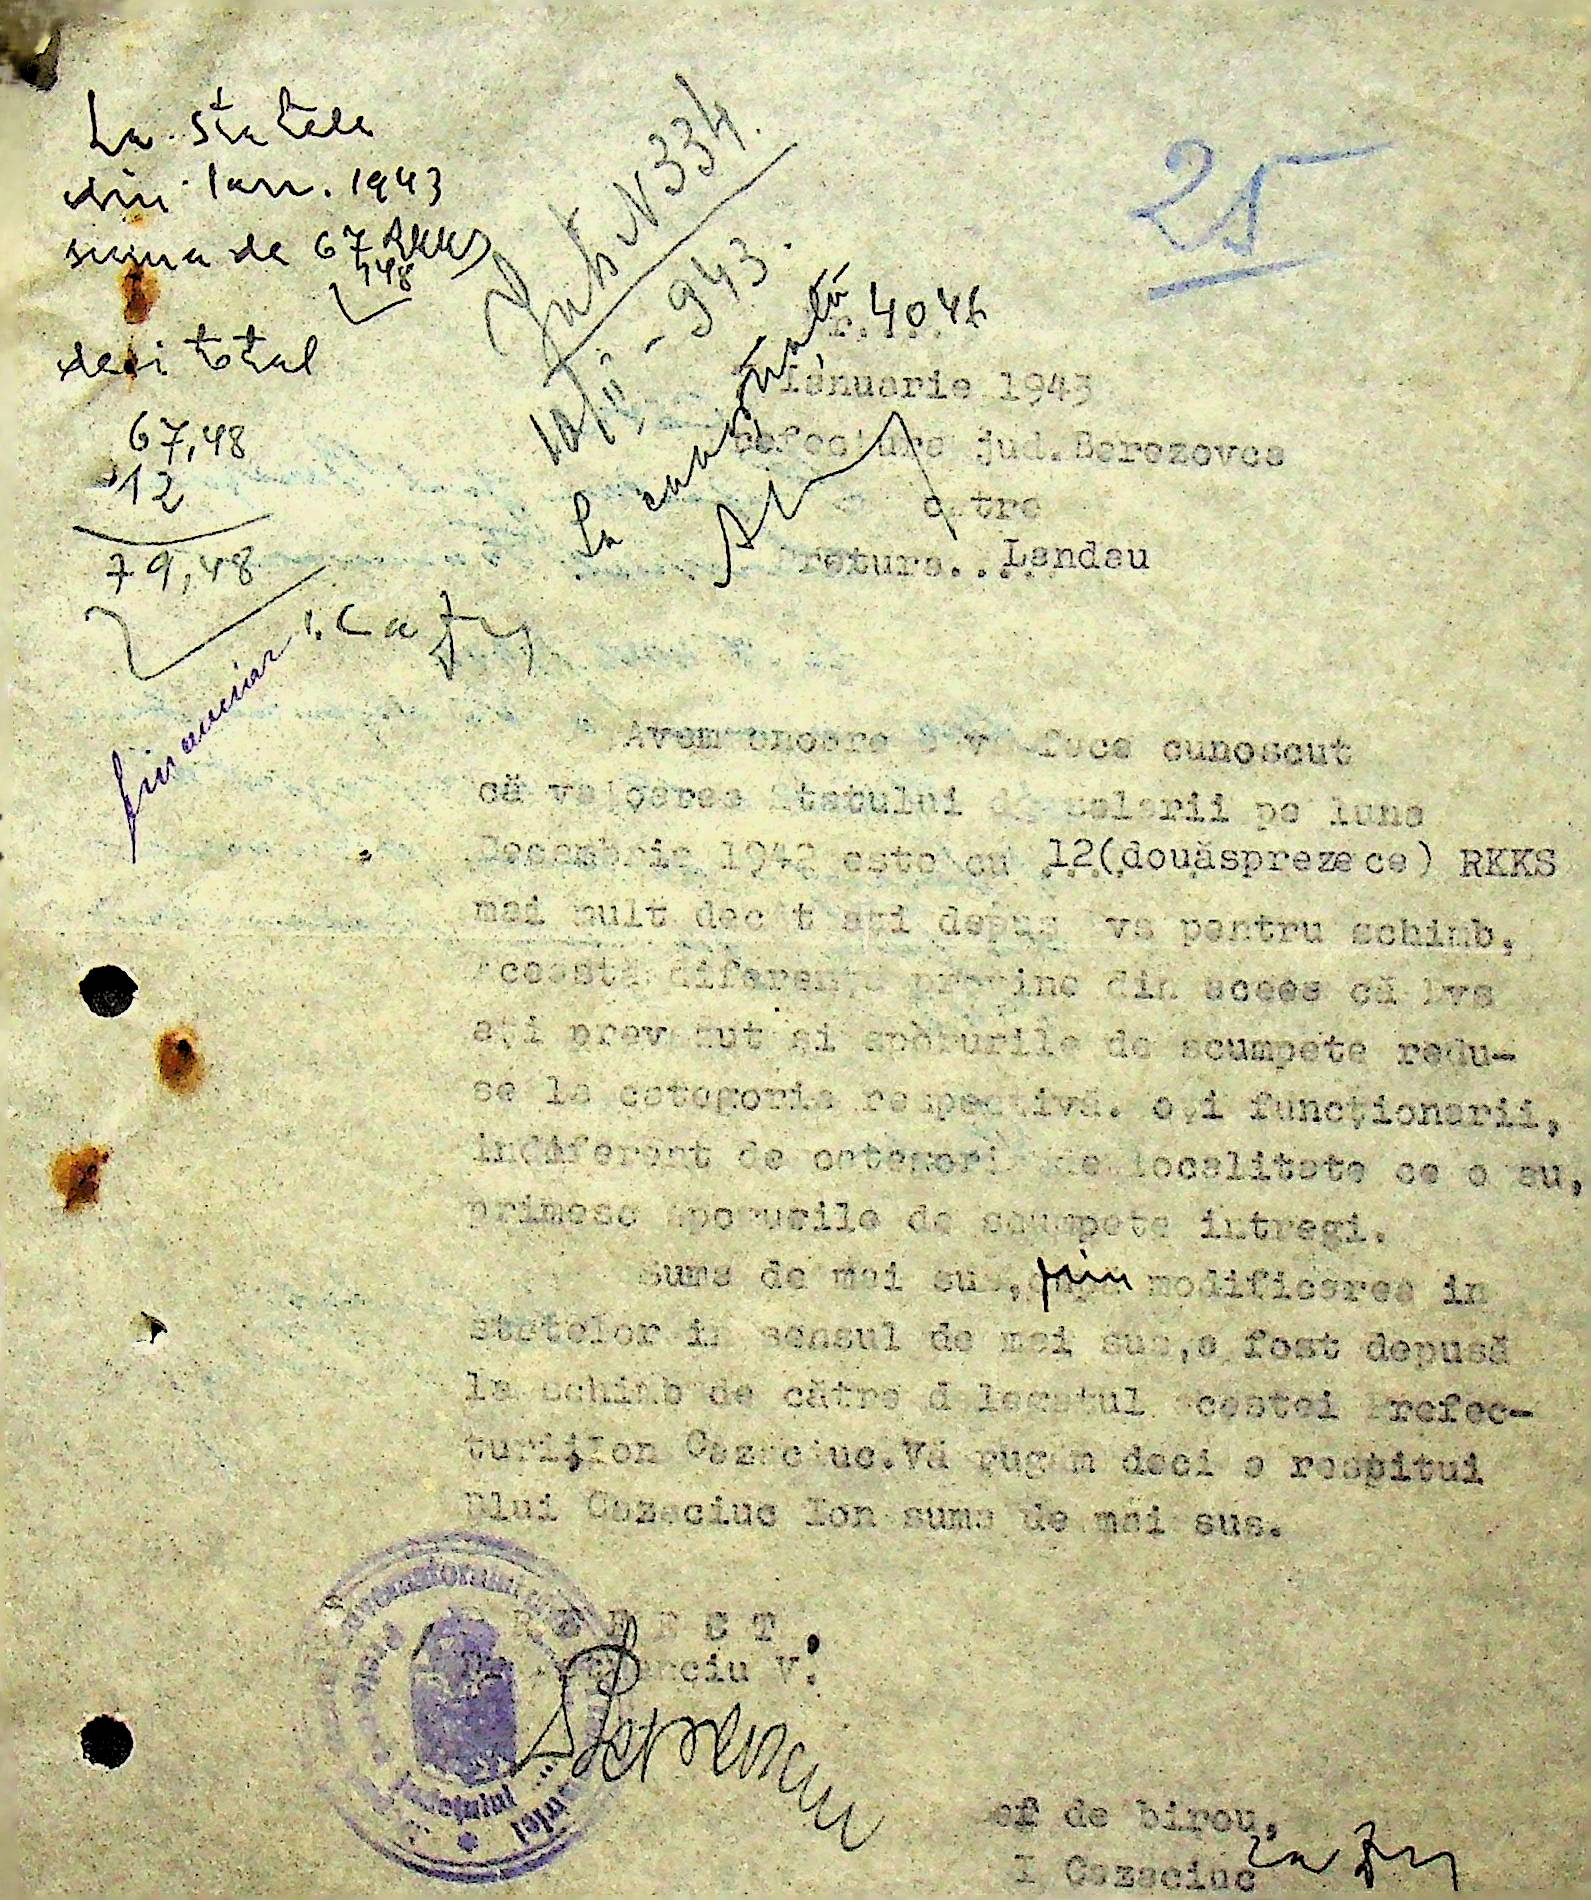 La statele
din Ian. 1943
suma de 67 RKKS
48
deci total
67,48
12
79,48
financiar
N 334.
10/II - 943.
25
La
4046
Ianuarie 1943
Prefectura jud. Berezovca
catre
Pretura... Landau
Avem onoare a vă face cunoscut
că valoarea statului de salarii pe luna
Decembrie 1942 este cu 12(douăsprezece) RKKS
mai mult decât ați depus Dvs pentru schimb.
Această diferență provine din aceea că Dvs
ați prevăzut și sporurile de scumpete redu-
se la categoria respectivă. Toți funcționarii,
indiferent de categoria de localitate ce o au,
primesc sporurile de scumpete intregi.
Suma de mai sus, prin modificarea in
statelor in sensul de mai sus, a fost depusă
la schimb de către delegatul acestei Prefec-
turi, Ion Cazaciuc. Vă rugăm deci a restitui
Dlui Cazaciuc Ion suma de mai sus.
PREFECT,
V.
Guvernatorului
Județului
Șef de birou,
I Cazaciuc